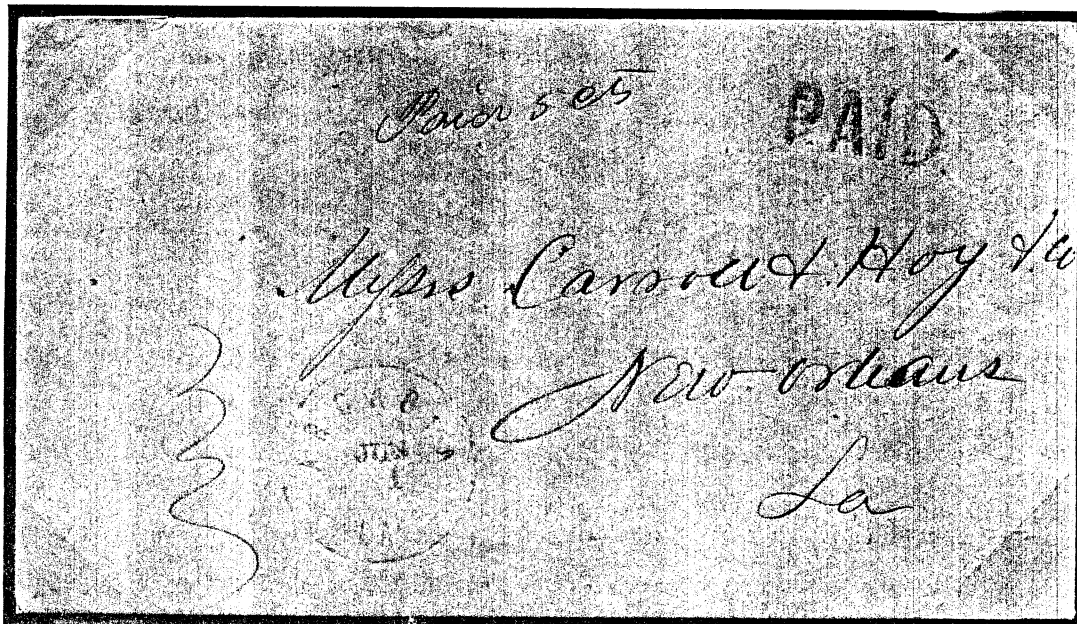 Paid 5 cts
PAID
Messrs Carroll & Hoy & Co
New Orleans
La
JUN